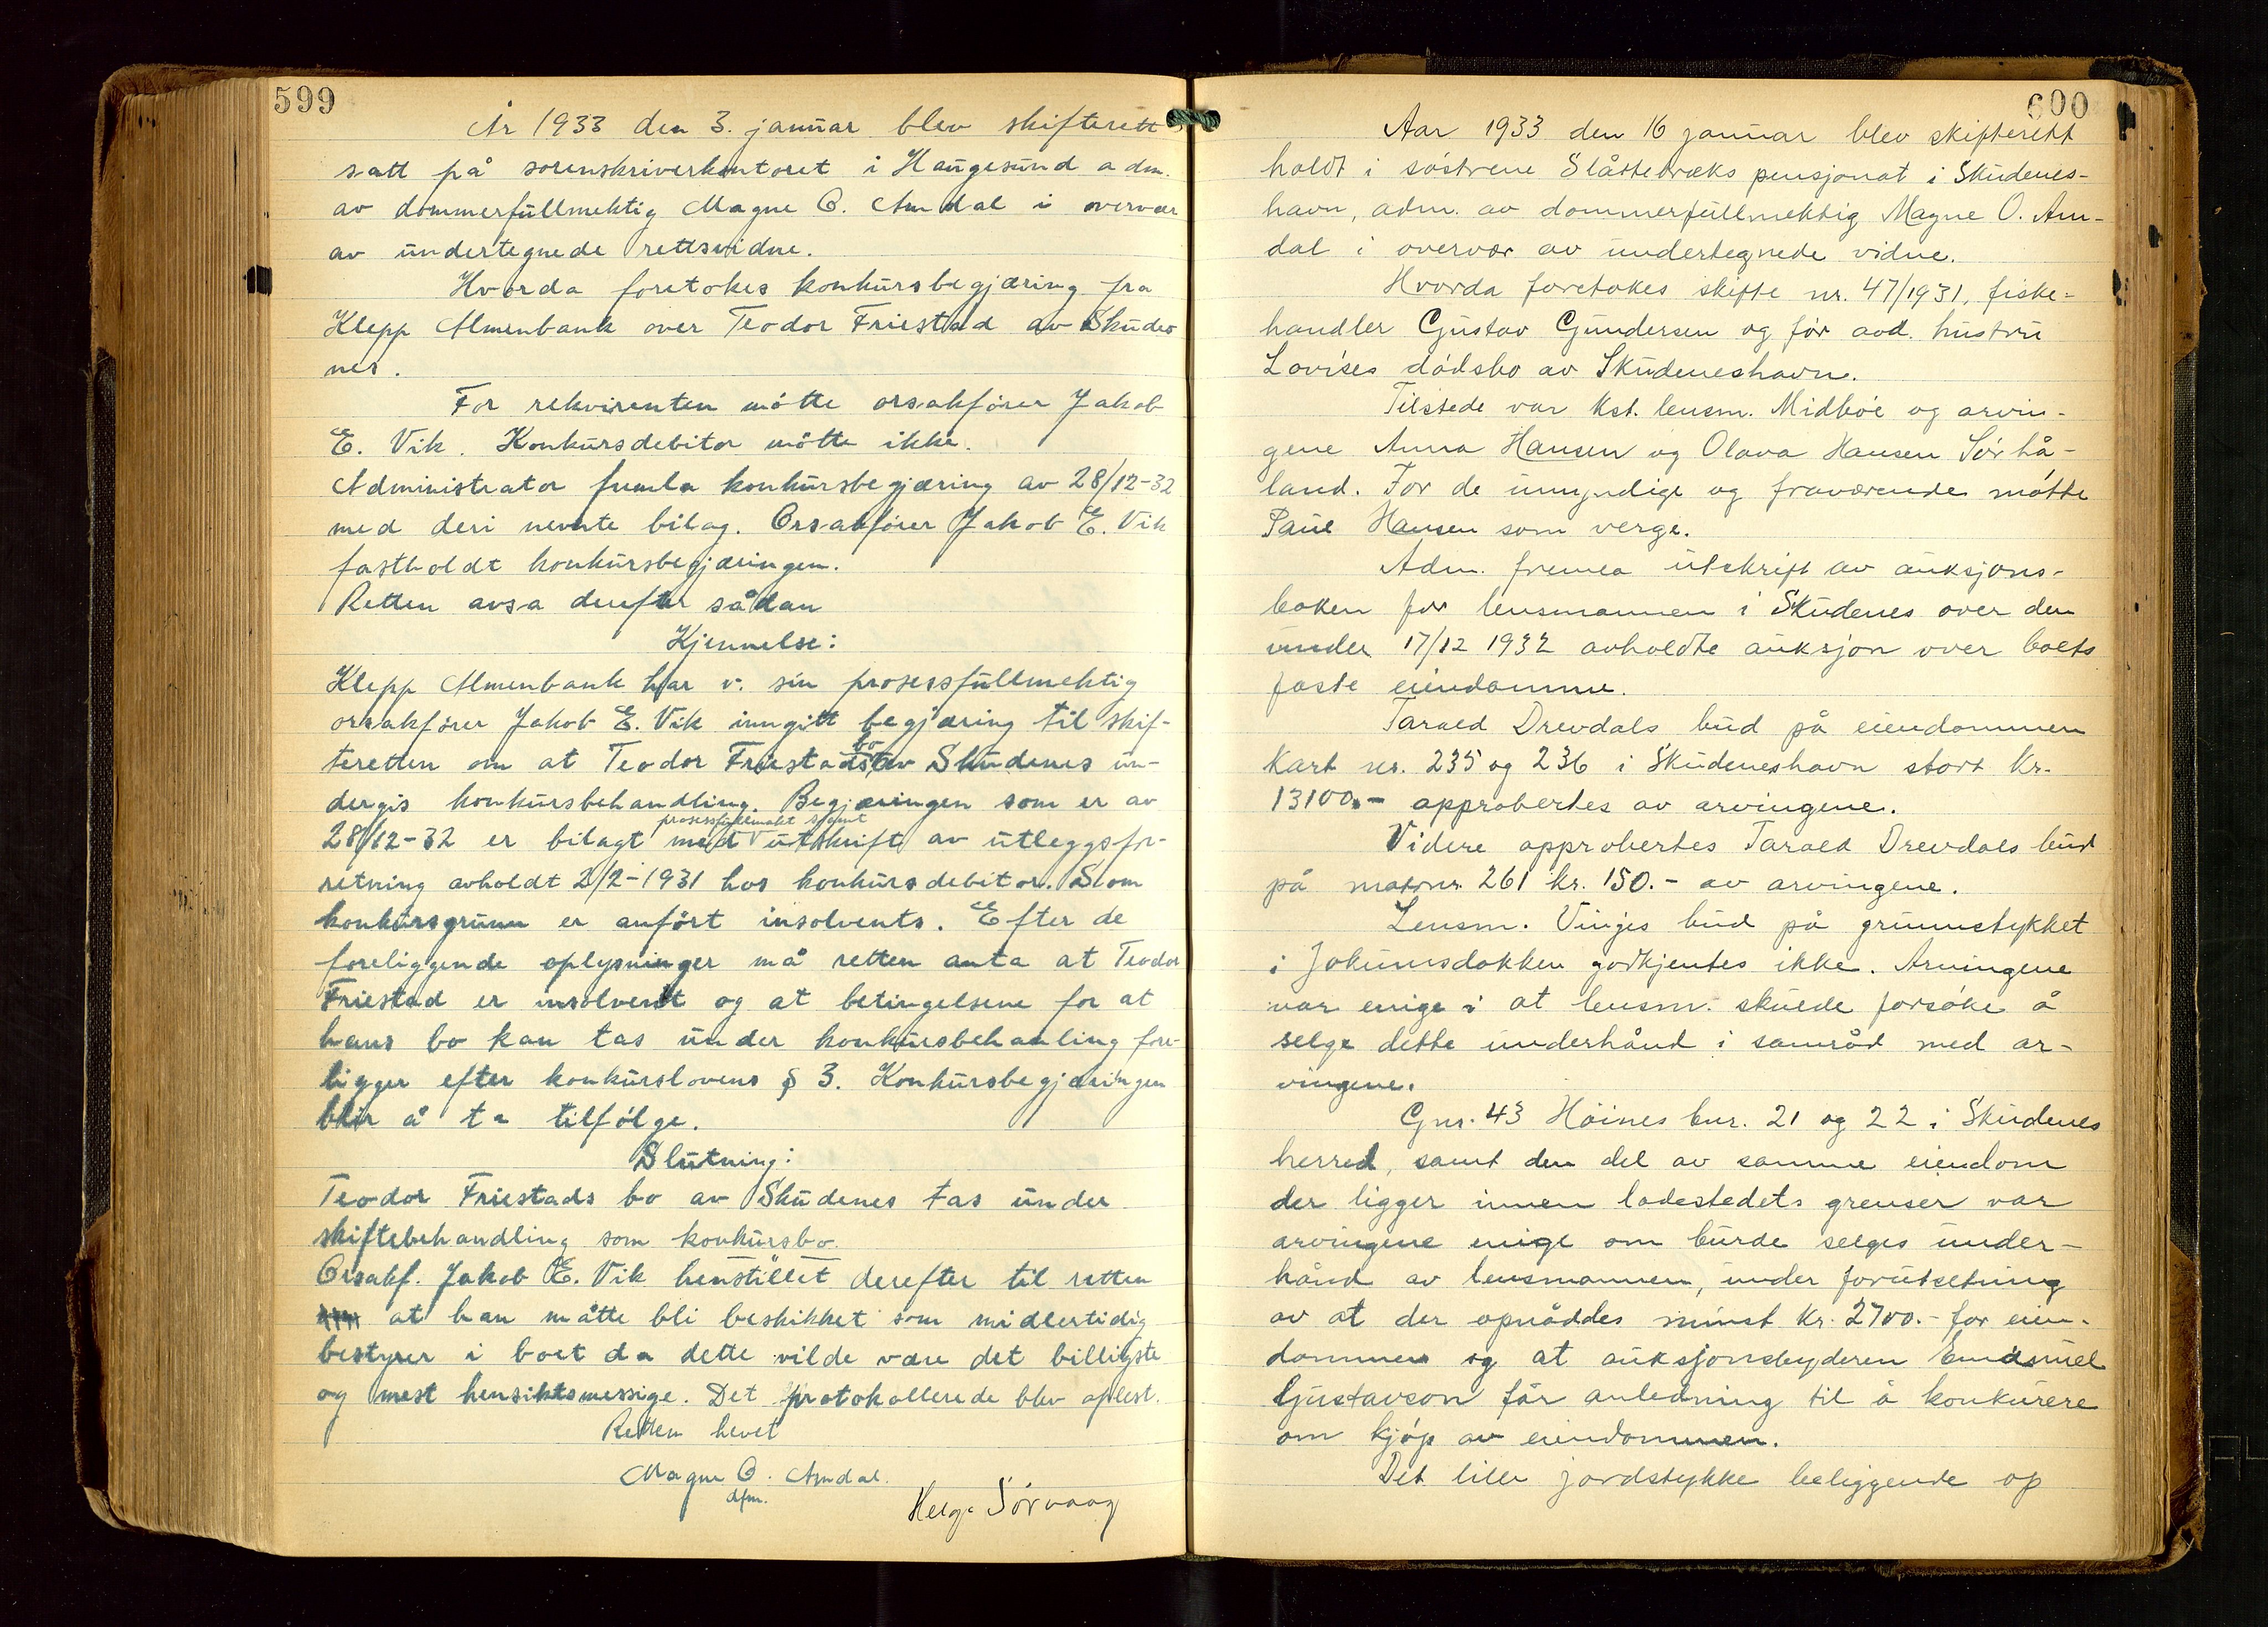 599
År 1933 den 3. januar blev skifterett
satt på sorenskriverkontoret i Haugesund adm.
av dommerfullmektig Magne O. Amdal i overvær
av undertegnede rettsvidne.
Hvorda foretokes konkursbegjæring fra
Klepp Almenbank over Teodor Friestad av Skude-
nes.
For rekvirenten møtte orsakfører Jakob
E. Vik. Konkursdebitor møtte ikke.
Administrator fremla konkursbegjæring av 28/12-32
med deri nevnte bilag. Orsakfører Jakob E. Vik
fastholdt konkursbegjæringen.
Retten avsa derefter sådan
Kjennelse:
Klepp Almenbank har v. sin prosessfullmektig
orsakfører Jakob E. Vik inngitt begjæring til skif-
teretten om at Teodor Friestads bo av Skudenes un-
dergis konkursbehandling. Begjæringen som er av
28/12-32 er bilagt med prosessfullmakt samt utskrift av utleggsfor-
retning avholdt 2/2-1931 hos konkursdebitor. Som
konkursgrunn er anført insolvents. Efter de
foreliggende oplysninger må retten anta at Teodor
Friestad er insolvent og at betingelsene for at
hans bo kan tas under konkursbehanling fore-
ligger efter konkurslovens § 3. Konkursbegjæringen
blir å ta tilfølge.
Slutning:
Teodor Friestads bo av Skudenes tas under
skiftebehandling som konkursbo.
Orsakf. Jakob E. Vik henstillet derefter til retten
at han måtte bli beskikket som midlertidig
bestyrer i boet da dette vilde være det billigste
og mest hensiktsmessige. Det protokollerede blev oplest.
Retten hevet
Magne O. Amdal.
dfm.
Helge Sørvaag
600
Aar 1933 den 16 januar blev skifterett
holdt i søstrene Slåttebræks pensjonat i Skudenes-
havn, adm. av dommerfullmektig Magne O. Am-
dal i overvær av undertegnede vidne.
Hvorda foretokes skifte nr. 47/1931, fiske-
handler Gustav Gundersen og før avd. hustru
Lovises dødsbo av Skudeneshavn.
Tilstede var kst. lensm. Midbøe og arvin-
gene Anna Hansen og Olava Hansen Sørhå-
land. For de umyndige og fraværende møtte
Paul Hansen som verge.
Adm. fremla utskrift av auksjons-
boken for lensmannen i Skudenes over den
under 17/12 1932 avholdte auksjon over boets
faste eiendomme.
Tarald Drevdals bud på eiendommen
kart nr. 235 og 236 i Skudeneshavn stort kr.
13100.- approbertes av arvingene.
Videre approbertes Tarald Drevdals bud
på matrnr. 261 kr. 150.- av arvingene.
Lensm. Vinjes bud på grunnstykket
i Jokumsdokken godkjentes ikke. Arvingene
var enige i at lensm. skulde forsøke å
selge dette underhånd i samråd med ar-
vingene.
Gnr. 43 Høines bnr. 21 og 22 i Skudenes
herred, samt den del av samme eiendom
der ligger innen ladestedets grenser var
arvingene enige om burde selges under-
hånd av lensmannen, under forutsetning
av at der opnåddes minst kr. 2700.- for eien-
dommen og at auksjonsbyderen
Gustavson får anledning til å konkurere
om kjøp av eiendommen.
Det lille jordstykke beliggende op